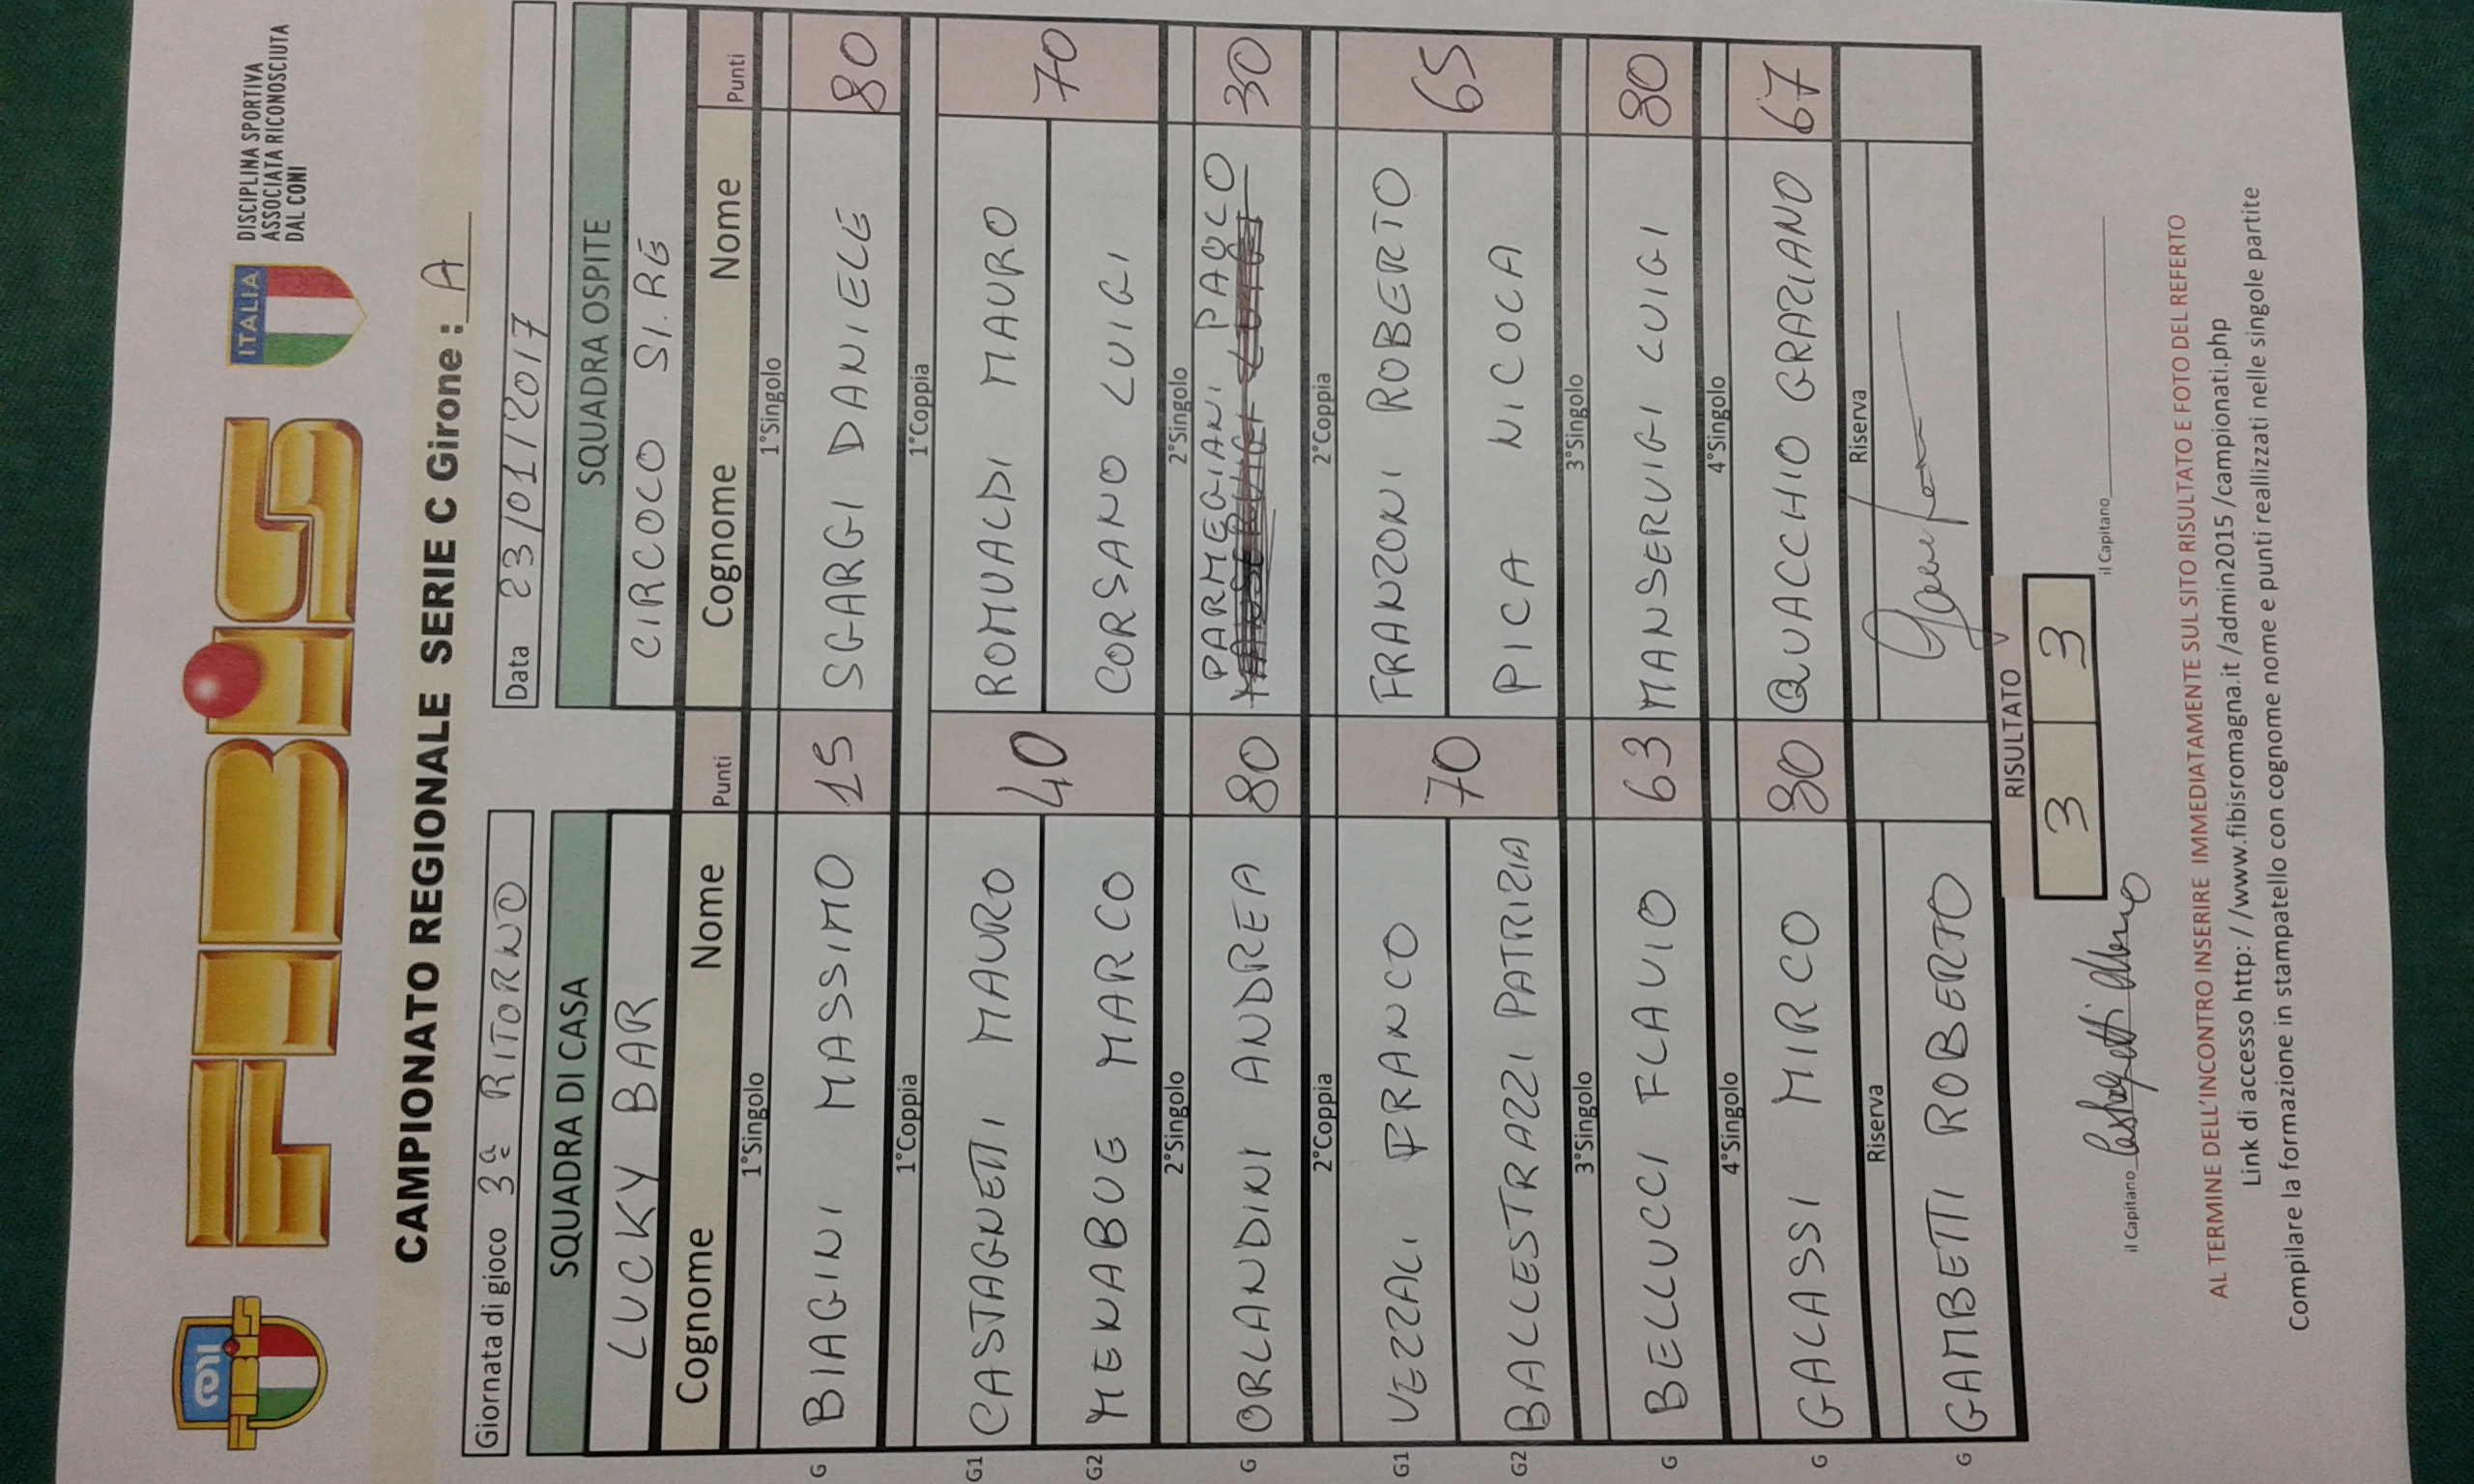 FIBiS
ITALIA
DISCIPLINA SPORTIVA
ASSOCIATA RICONOSCIUTA
DAL CONI
CAMPIONATO REGIONALE SERIE C Girone : A
Giornata di gioco 3ª RITORNO Data 23/01/2017
SQUADRA DI CASA SQUADRA OSPITE
LUCKY BAR CIRCOLO SI.RE
Cognome Nome Punti Cognome Nome Punti
1°Singolo 1°Singolo
G BIAGINI MASSIMO 15 SGARGI DANIELE 80
1°Coppia 1°Coppia
G1 CASTAGNETTI MAURO 40 ROMUALDI MAURO 70
G2 MENABUE MARCO CORSANO LUIGI
2°Singolo 2°Singolo
G ORLANDINI ANDREA 80 PARMEGIANI PAOLO 30
2°Coppia 2°Coppia
G1 VEZZALI FRANCO 70 FRANZONI ROBERTO 65
G2 BALLESTRAZZI PATRIZIA PICA NICOLA
3°Singolo 3°Singolo
G BELLUCCI FLAVIO 63 MANSERVIGI LUIGI 80
4°Singolo 4°Singolo
G GALASSI MIRCO 80 QUACCHIO GRAZIANO 67
Riserva Riserva
G GAMBETTI ROBERTO
RISULTATO
3 3
il Capitano il Capitano
AL TERMINE DELL'INCONTRO INSERIRE IMMEDIATAMENTE SUL SITO RISULTATO E FOTO DEL REFERTO
Link di accesso http: //www.fibisromagna.it /admin2015 /campionati.php
Compilare la formazione in stampatello con cognome nome e punti reallizzati nelle singole partite